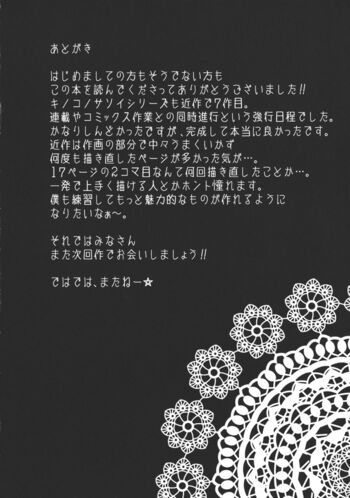 あとがき
はじめましての方もそうでない方も
この本を読んでくださってありがとうございました!!
キノコノサソイシリーズも近作で7作目。
連載やコミックス作業との同時進行という強行日程でした。
かなりしんどかったですが、完成して本当に良かったです。
近作は作画の部分で中々うまくいかず
何度も描き直したページが多かった気が…。
17ページの2コマ目なんて何回描き直したことか…。
一発で上手く描ける人とかホント憧れます。
僕も練習してもっと魅力的なものが作れるように
なりたいなぁ〜。
それではみなさん
また次回作でお会いしましょう!!
ではでは、またねー☆